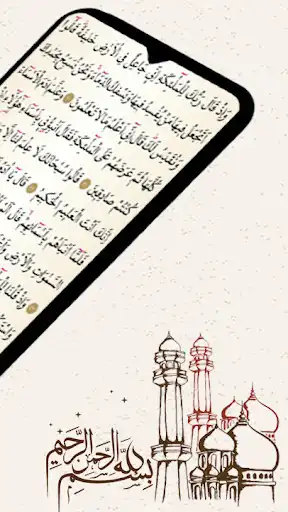 وَإِذْ قَالَ رَبُّكَ لِلْمَلَٰٓئِكَةِ إِنِّى جَاعِلٌ فِى ٱلْأَرْضِ خَلِيفَةً قَالُوٓا۟
أَتَجْعَلُ فِيهَا مَن يُفْسِدُ فِيهَا وَيَسْفِكُ ٱلدِّمَآءَ وَنَحْنُ نُسَبِّحُ بِحَمْدِكَ
وَنُقَدِّسُ لَكَ قَالَ إِنِّىٓ أَعْلَمُ مَا لَا تَعْلَمُونَ وَعَلَّمَ ءَادَمَ ٱلْأَسْمَآءَ
كُلَّهَا ثُمَّ عَرَضَهُمْ عَلَى ٱلْمَلَٰٓئِكَةِ فَقَالَ أَنۢبِـُٔونِى بِأَسْمَآءِ هَٰٓؤُلَآءِ
كُنتُمْ صَٰدِقِينَ قَالُوا۟ سُبْحَٰنَكَ لَا عِلْمَ لَنَآ
إِنَّكَ أَنتَ ٱلْعَلِيمُ ٱلْحَكِيمُ قَالَ
فَلَمَّآ أَنۢبَأَهُم بِأَسْمَآئِهِمْ قَالَ
ٱلسَّمَٰوَٰتِ وَٱلْأَرْضِ
وَإِذْ قُلْنَا
بِسْمِ اللهِ الرَّحْمَنِ الرَّحِيمِ